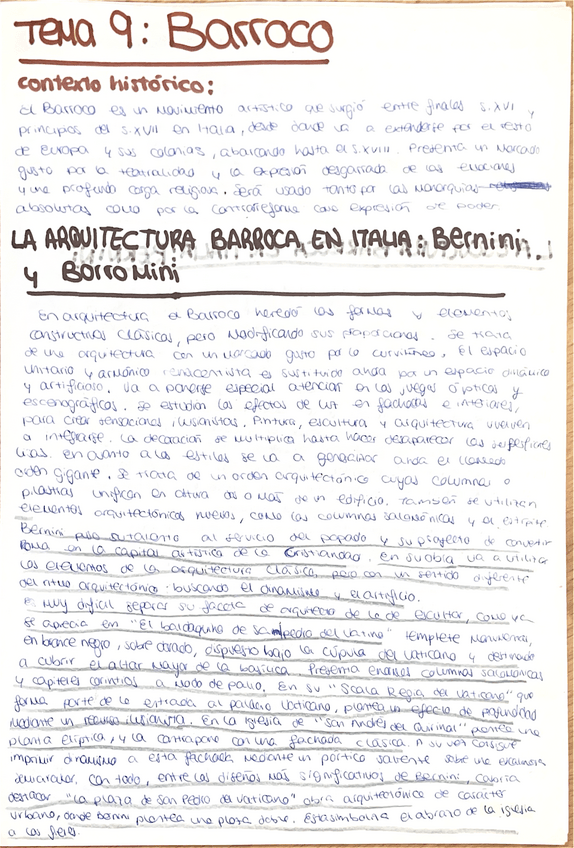 TEMA 9: Barroco
contexto histórico:
El Barroco es un movimiento artístico que surgió entre finales s.XVI y
principios del s.XVII en Italia, desde donde va a extenderse por el resto
de europa y sus colonias, abarcando hasta el s.XVIII. Presenta un marcado
gusto por la teatralidad y la expresión desgarrada de las emociones
y una profunda carga religiosa. Será usado tanto por las monarquías
absolutas como por la contrarreforma como expresión de poder.
LA ARQUITECTURA BARROCA EN ITALIA: Bernini
y Borromini
En arquitectura el Barroco heredó las formas y elementos
constructivos clásicos, pero modificando sus proporciones. Se trata
de una arquitectura con un marcado gusto por lo curvilíneo, El espacio
unitario y armónico renacentista es sustituido ahora por un espacio dinámico
y artificioso. Va a ponerse especial atención en los juegos ópticos y
escenográficos. Se estudian los efectos de luz en fachadas e interiores,
para crear sensaciones ilusionistas. Pintura, escultura y arquitectura vuelven
a integrarse. La decoración se multiplica hasta hacer desaparecer las superficies
lisas. en cuanto a los estilos se va a generalizar ahora el llamado
orden gigante. Se trata de un orden arquitectónico cuyas columnas o
pilastras unifican en altura dos o más de un edificio. También se utilizan
elementos arquitectónicos nuevos, como las columnas salomónicas y el estípite.
Bernini puso su talento al servicio del papado y su proyecto de convertir
Roma en la capital artística de la cristiandad. en su obra va a utilizar
los elementos de la arquitectura clásica, pero con un sentido diferente
del ritmo arquitectónico: buscando el dinamismo y el artificio.
es muy difícil separar su faceta de arquitecto de la de escultor, como ya
se aprecia en "El baldaquino de San pedro del Vaticano" templete monumental,
en bronce negro, sobre dorado, dispuesto bajo la cúpula del Vaticano y destinado
a cubrir el altar mayor de la basílica. Presenta enormes columnas salomónicas
y capiteles corintios a modo de palio. En su "Scala Regia del Vaticano" que
forma parte de la entrada al palacio Vaticano, plantea un efecto de profundidad
mediante un recurso ilusionista. En la iglesia de "San Andrés del Quirinal" plantea una
planta elíptica, y la contrapone con una fachada clásica. A su vez consigue
imprimir dinamismo a esta fachada mediante un pórtico saliente sobre una escalinata
semicircular. Con todo, entre los diseños más significativos de Bernini, cabría
destacar "la plaza de San Pedro del Vaticano" obra arquitectónica de carácter
urbano, donde bernini plantea una plaza doble. Esta simboliza el abrazo de la iglesia
a los fieles.